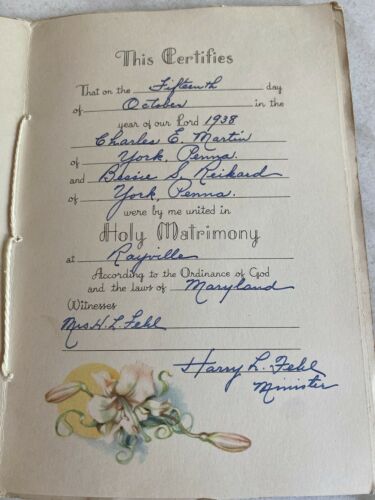 This Certifies
That on the Fifteenth day
of October in the
year of our Lord 1938
Charles E. Martin
of York, Penna.
and Bessie S. Reikard
of York, Penna.
were by me united in
Holy Matrimony
at Rayville
According to the Ordinance of God
and the laws of Maryland
Witnesses
Mrs H. L. Fehl
Harry L. Fehl
Minister